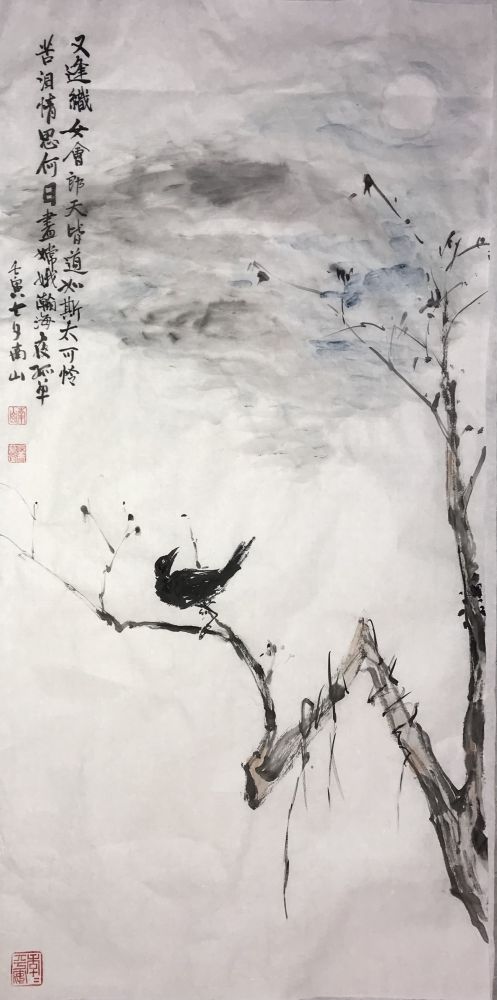 又逢織女會郎天皆道如斯太可怜
苦泪情思何日盡嫦娥瀚海夜孤单
壬寅七夕南山